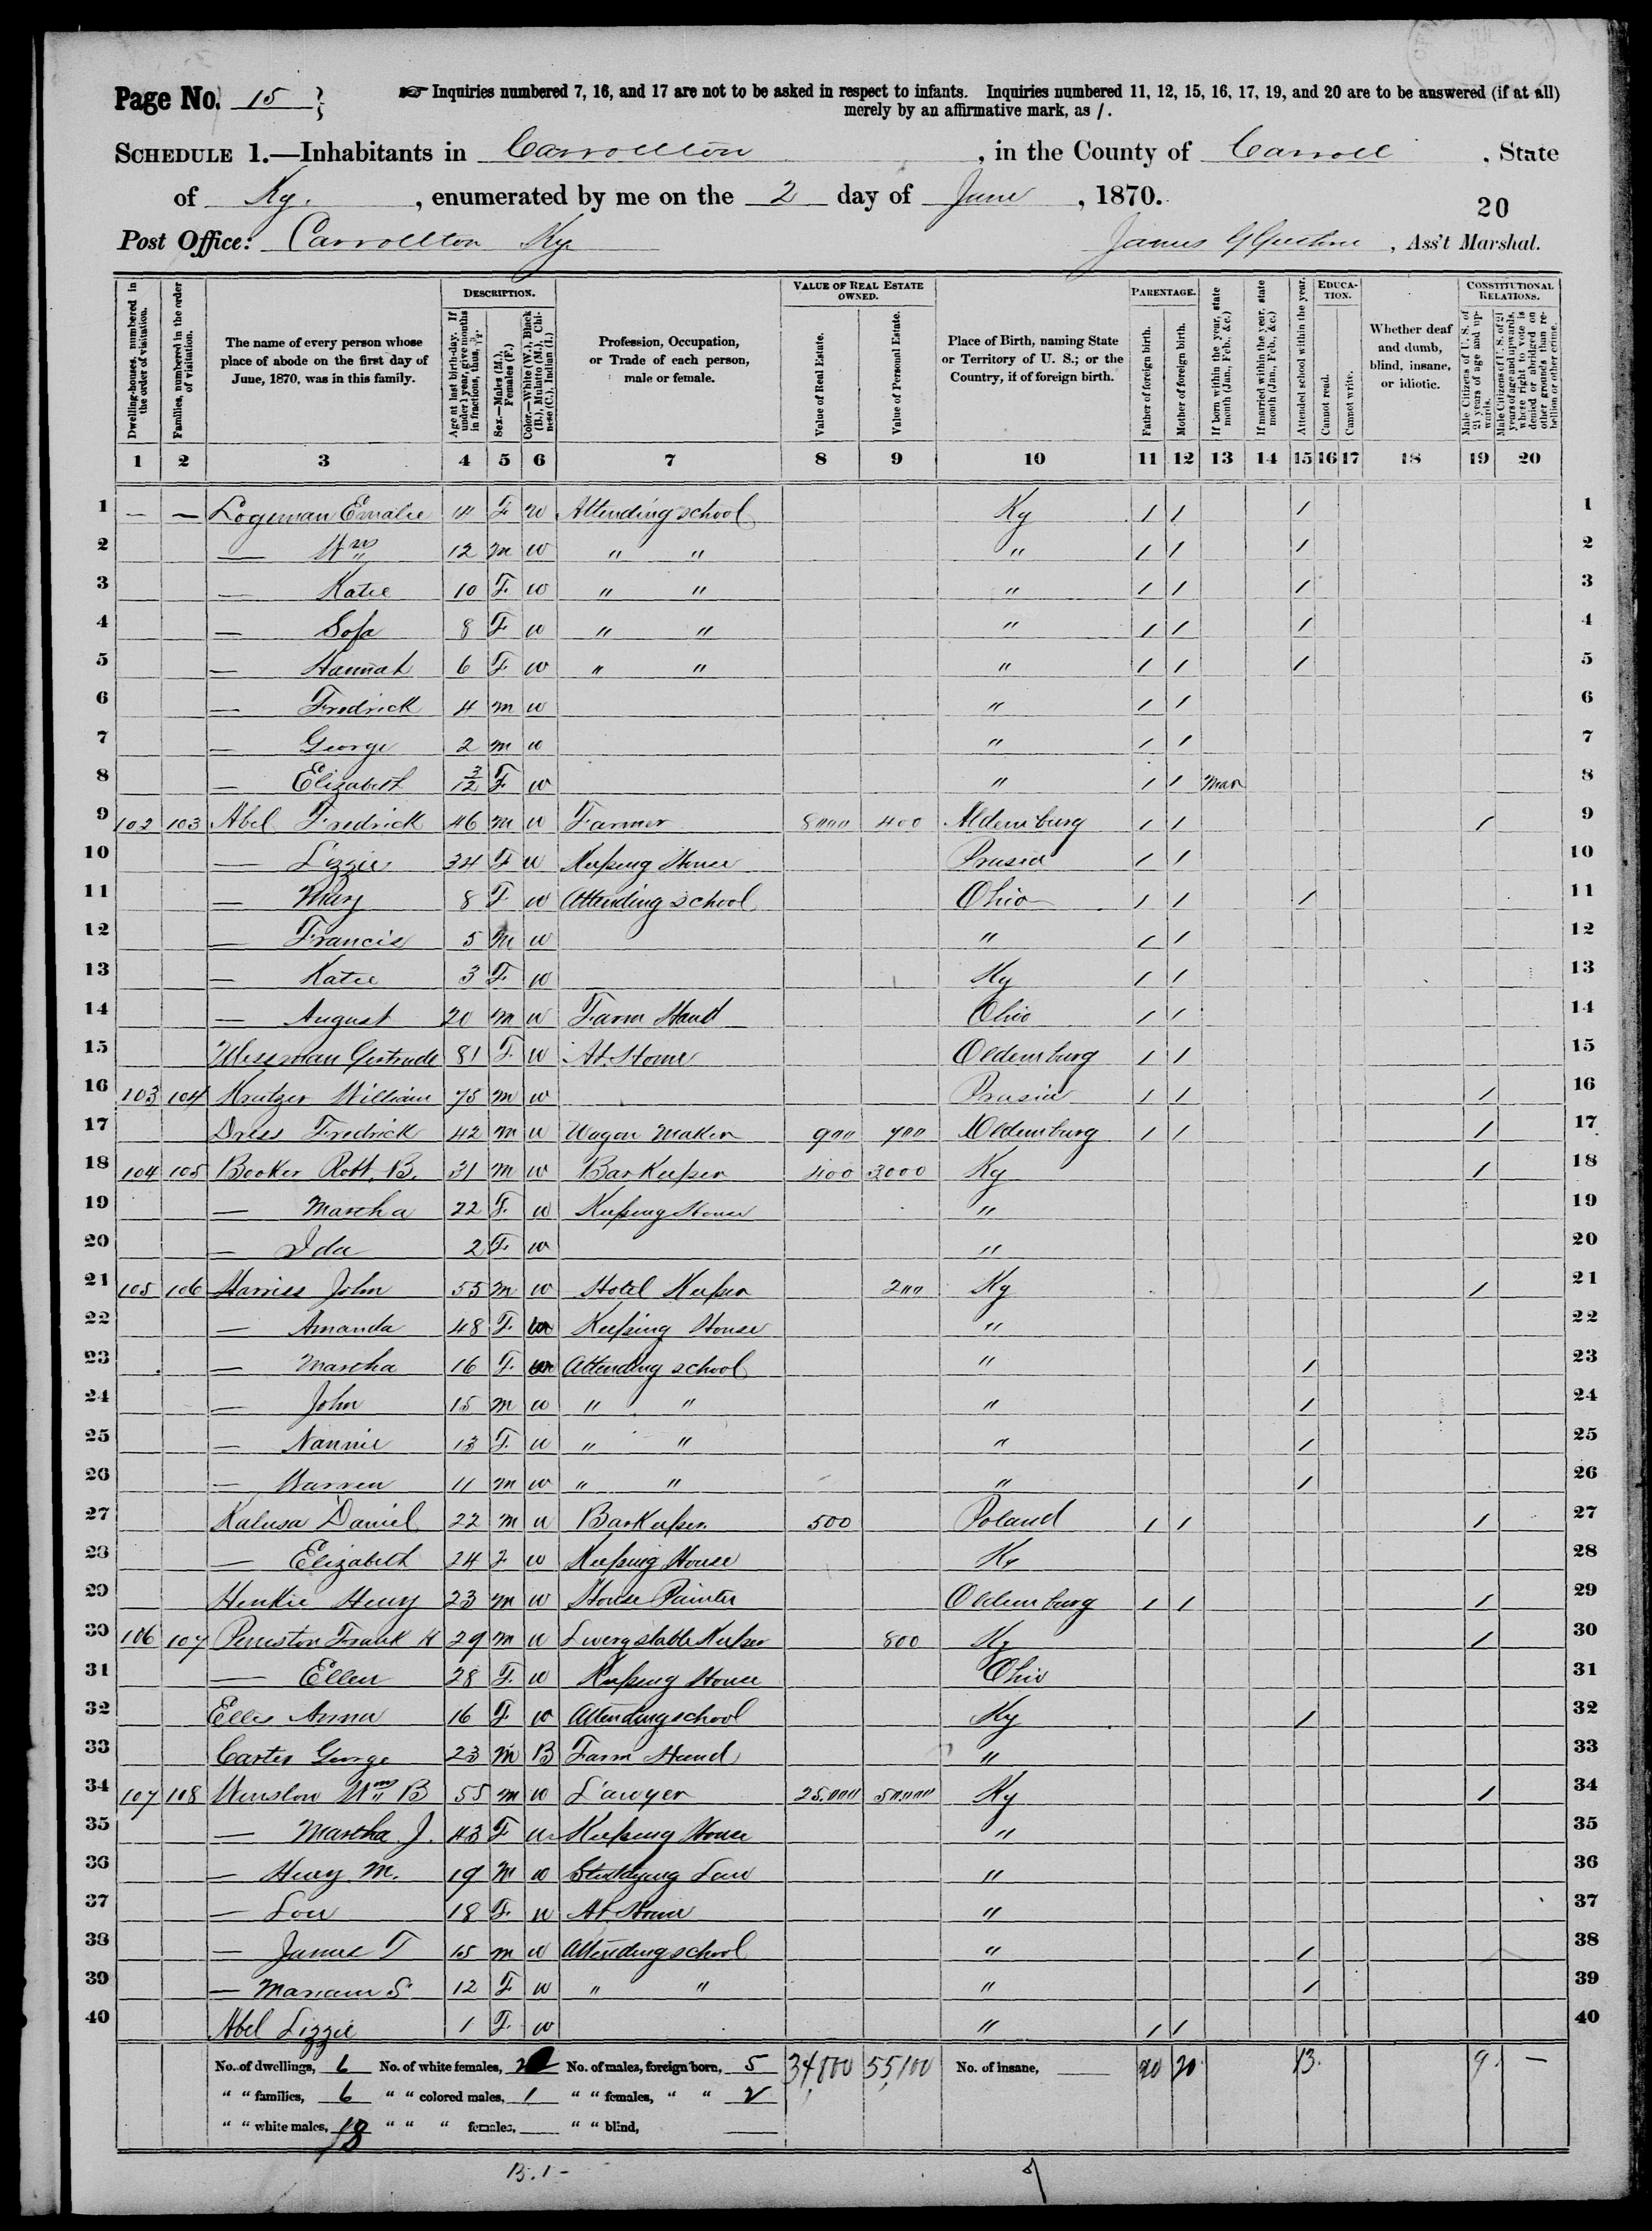 Page No. 15
☞ Inquiries numbered 7, 16, and 17 are not to be asked in respect to infants. Inquiries numbered 11, 12, 15, 16, 17, 19, and 20 are to be answered (if at all)
merely by an affirmative mark, as /.
SCHEDULE 1.—Inhabitants in Carrollton, in the County of Carroll, State
of Ky., enumerated by me on the 2 day of June, 1870.
20
Post Office: Carrollton Ky James, Ass't Marshal.
Dwelling-houses, numbered in the order of visitation.
Families, numbered in the order of visitation.
The name of every person whose place of abode on the first day of June, 1870, was in this family.
DESCRIPTION.
Age at last birth-day. If under 1 year, give months in fractions, thus, 3/12.
Sex.—Males (M.), Females (F.)
Color.—White (W.), Black (B.), Mulatto (M.), Chinese (C.), Indian (I.)
Profession, Occupation, or Trade of each person, male or female.
VALUE OF REAL ESTATE OWNED.
Value of Real Estate.
Value of Personal Estate.
Place of Birth, naming State or Territory of U. S.; or the Country, if of foreign birth.
PARENTAGE.
Father of foreign birth.
Mother of foreign birth.
If born within the year, state month (Jan., Feb., &c.)
If married within the year, state month (Jan., Feb., &c.)
Attended school within the year.
EDUCATION.
Cannot read.
Cannot write.
Whether deaf and dumb, blind, insane, or idiotic.
CONSTITUTIONAL RELATIONS.
Male Citizens of U. S. of 21 years of age and upwards.
Male Citizens of U. S. of 21 years of age and upwards, where right to vote is denied or abridged on other grounds than rebellion or other crime.
1 2 3 4 5 6 7 8 9 10 11 12 13 14 15 16 17 18 19 20
1 — — Logeman Emalie 14 F W Attending school Ky / / / 1
2 — Wm 12 m w " " " / / / 2
3 — Katie 10 F. w " " " / / / 3
4 — Sofa 8 F w " " " / / / 4
5 — Hannah 6 F. w " " " / / / 5
6 — Fredrick 4 m w " / / 6
7 — George 2 m w " / / 7
8 — Elizabeth 3/12 F w " / / Mar 8
9 102 103 Abel Fredrick 46 m w Farmer 8000 400 Oldenburg / / / 9
10 — Lizzie 34 F w Keeping House Prusia / / 10
11 — Mary 8 F w Attending school Ohio / / / 11
12 — Francis 5 m w " / / 12
13 — Katie 3 F. w Ky / / 13
14 — August 20 m w Farm Hand Ohio / / 14
15 Wessman Gertrude 81 F. w At Home Oldenburg / / 15
16 103 104 Krutzer William 75 m w Prusia / / / 16
17 Dress Fredrick 42 m w Wagon Maker 900 700 Oldenburg / / / 17
18 104 105 Booker Robt. B. 31 m w BarKeeper 400 3000 Ky / 18
19 — Martha 22 F. w Keeping House " 19
20 — Ida 2 F. w " 20
21 105 106 Harriss John 55 m w Hotel Keeper 200 Ky / 21
22 — Amanda 48 F. w Keeping House " 22
23 — Martha 16 F. w Attending school " / 23
24 — John 15 m w " " " / 24
25 — Nannie 13 F. w " " " / 25
26 — Warren 11 m w " " " / 26
27 Kalusa Daniel 22 m w BarKeeper 500 Poland / / / 27
28 — Elizabeth 24 F w Keeping House Ky 28
29 Henkie Henry 23 m w House Painter Oldenburg / / / 29
30 106 107 Peniston Frank H 29 m w Livery stable Keeper 800 Ky / 30
31 — Ellen 28 F. w Keeping House Ohio 31
32 Ellis Anna 16 F w Attending school Ky / 32
33 Carter George 23 m B Farm Hand " 33
34 107 108 Winslow Wm B 55 m w Lawyer 25.000 50.000 Ky / 34
35 — Martha J. 43 F w Keeping House " 35
36 — Henry M. 19 m w Studying Law " 36
37 — Lou 18 F. w At Home " 37
38 — James T 15 m w Attending school " / 38
39 — Mariam S. 12 F w " " " / 39
40 Abel Lizzie 1 F. w " / / 40
No. of dwellings, 6 No. of white females, No. of males, foreign born, 5 34,800 55,100 No. of insane, 20 20 13 9 —
" " families, 6 " " colored males, 1 " " females, " " 2
" " white males, 18 " " " females, " " blind,
B. 1 -